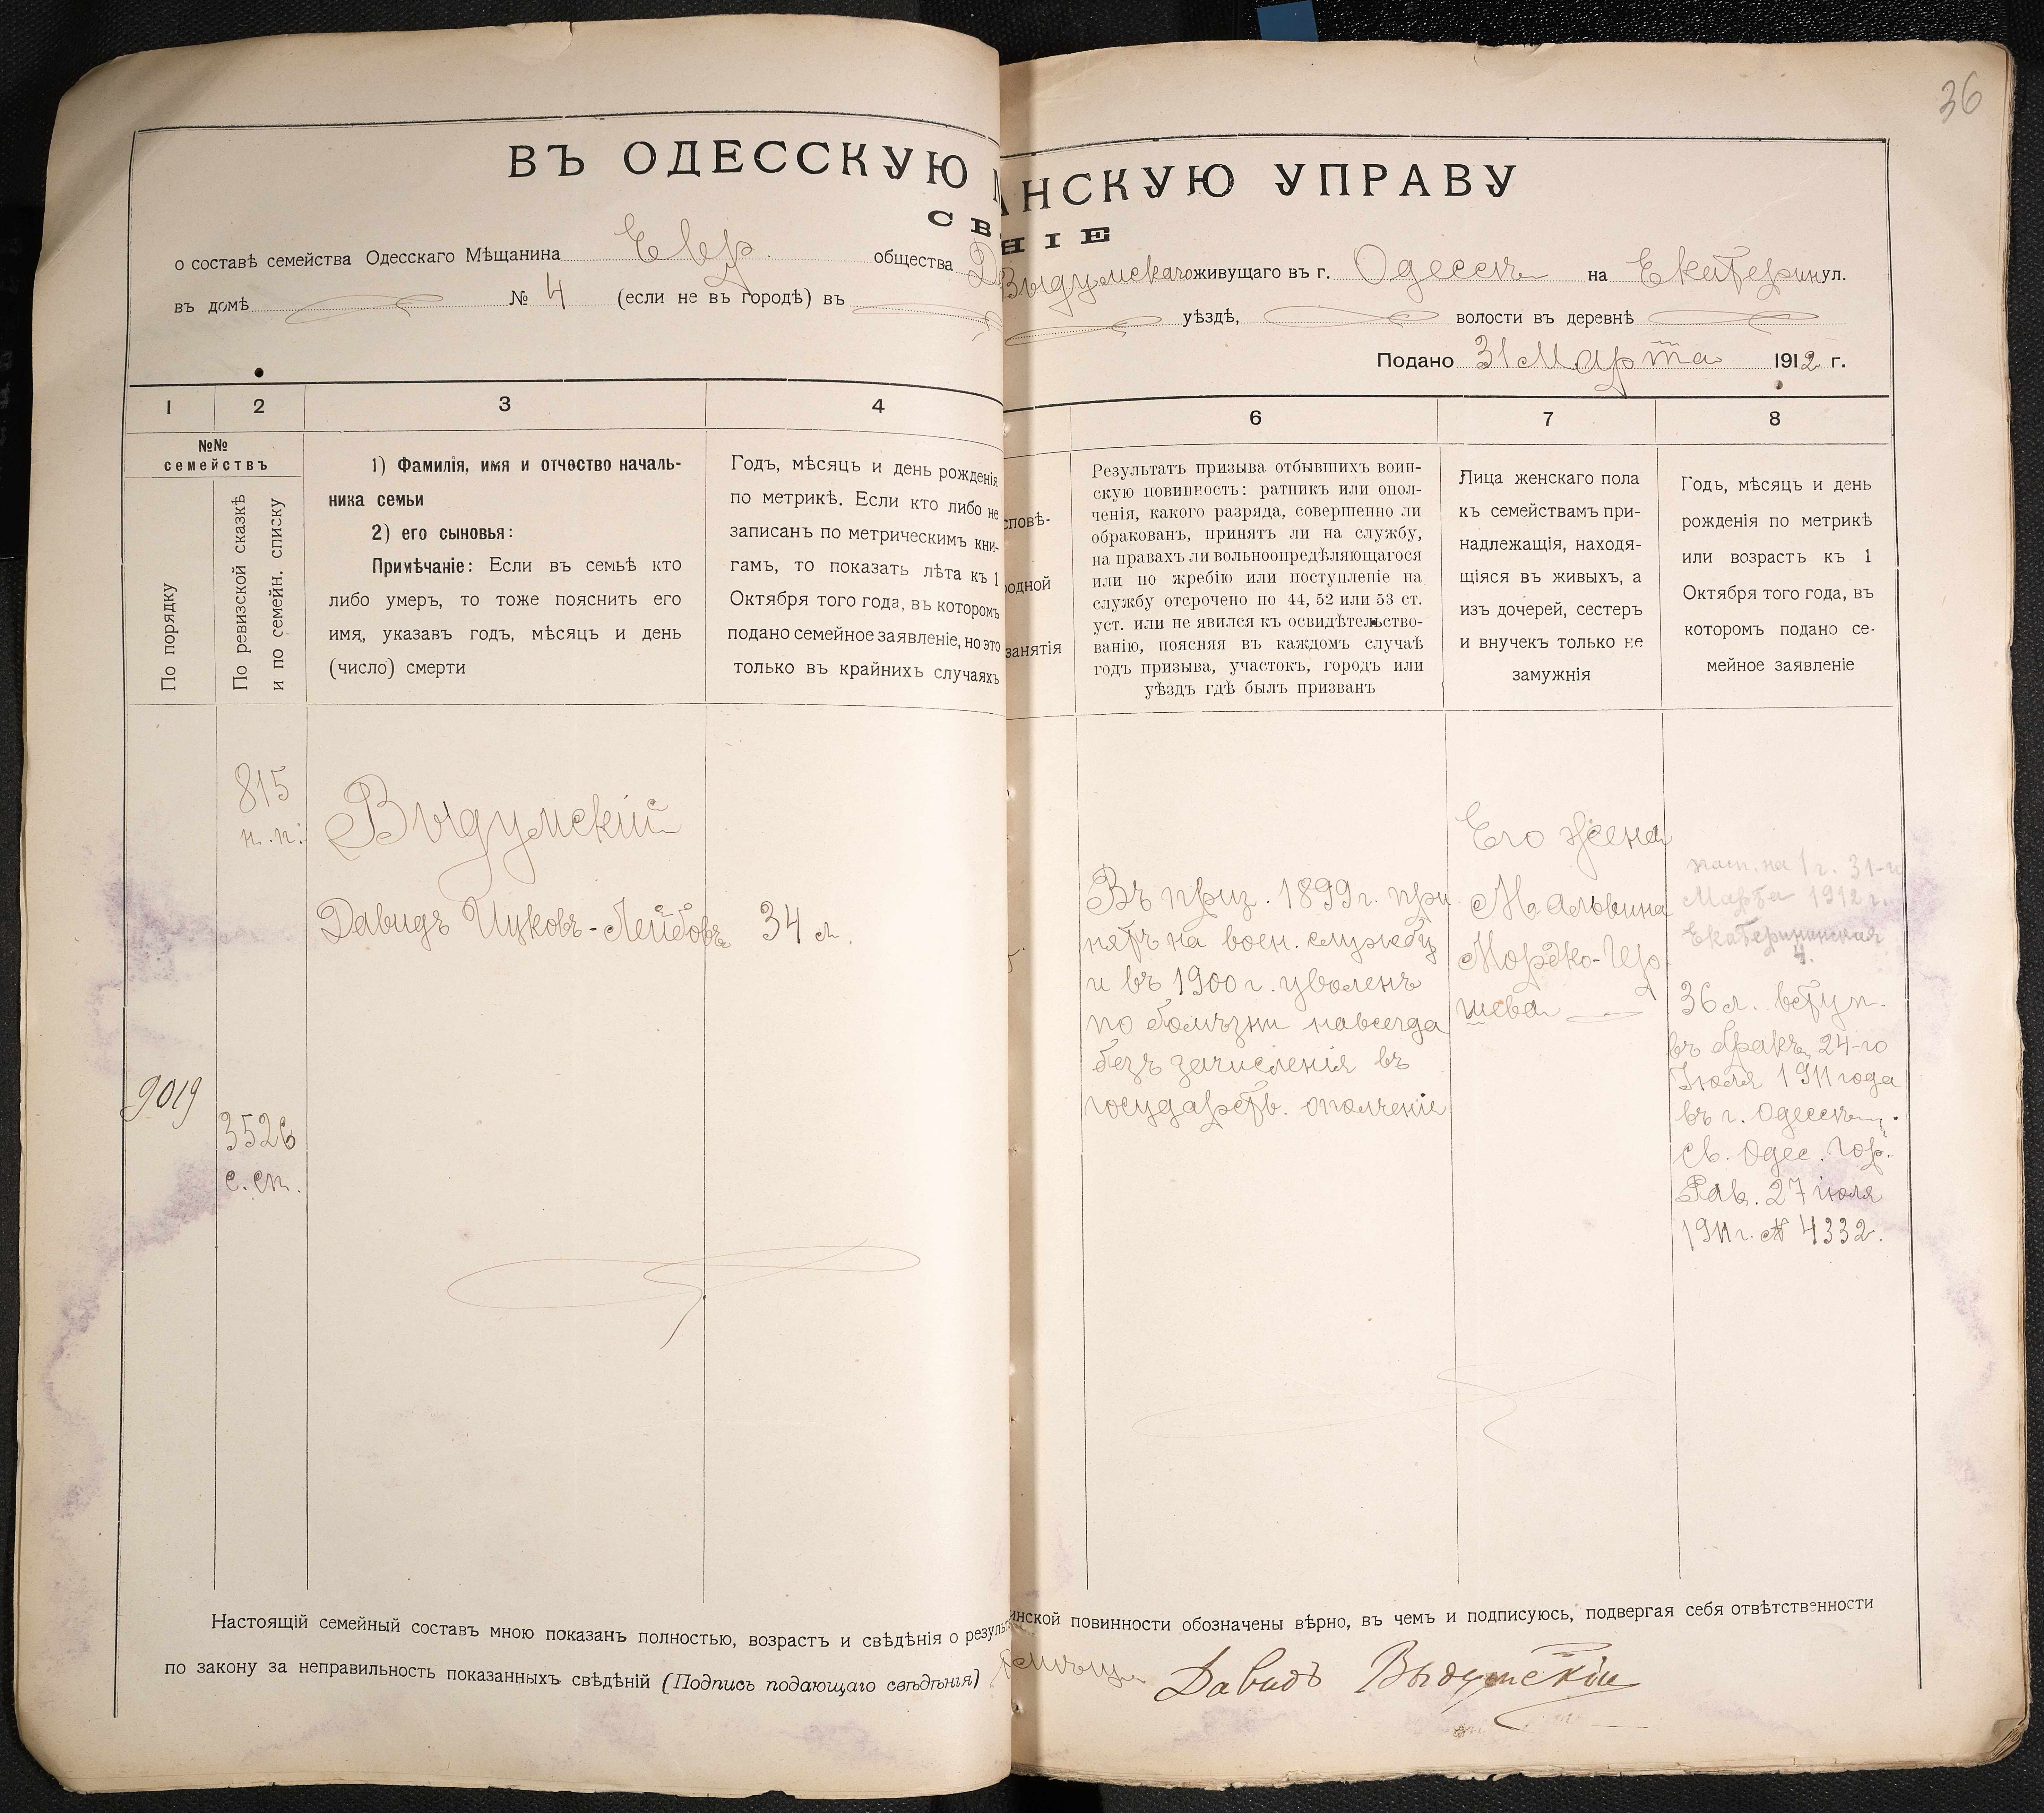 36
ВЪ ОДЕССКУЮ АНСКУЮ УПРАВУ
СВ НІЕ
о составѣ семейства Одесскаго Мѣщанина Евр. общества Д Выдумскаго живущаго въ г. Одессѣ на Екатерин ул.
въ домѣ № 4 (если не въ городѣ) въ уѣздѣ, волости въ деревнѣ
Подано 31 Марта 1912 г.
1 2 3 4 6 7 8
№№
семействъ
По порядку
По ревизской сказкѣ
и по семейн. списку
1) Фамилія, имя и отчество началь-
ника семьи
2) его сыновья:
Примѣчаніе: Если въ семьѣ кто
либо умеръ, то тоже пояснить его
имя, указавъ годъ, мѣсяцъ и день
(число) смерти
Годъ, мѣсяцъ и день рожденія
по метрикѣ. Если кто либо не
записанъ по метрическимъ кни-
гамъ, то показать лѣта къ 1
Октября того года, въ которомъ
подано семейное заявленіе, но это
только въ крайнихъ случаяхъ
сповѣ-
родной
занятія
Результатъ призыва отбывшихъ воин-
скую повинность: ратникъ или опол-
ченія, какого разряда, совершенно ли
обракованъ, принятъ ли на службу,
на правахъ ли вольноопредѣляющагося
или по жребію или поступленіе на
службу отсрочено по 44, 52 или 53 ст.
уст. или не явился къ освидѣтельство-
ванію, поясняя въ каждомъ случаѣ
годъ призыва, участокъ, городъ или
уѣздъ гдѣ былъ призванъ
Лица женскаго пола
къ семействамъ при-
надлежащія, находя-
щіяся въ живыхъ, а
изъ дочерей, сестеръ
и внучекъ только не
замужнія
Годъ, мѣсяцъ и день
рожденія по метрикѣ
или возрастъ къ 1
Октября того года, въ
которомъ подано се-
мейное заявленіе
9019
815
н.п.
3526
с. сп.
Выдумскій
Давидъ Ицковъ-Лейбовъ
34 л.
Въ приз. 1899 г. при
нятъ на воен. службу
и въ 1900 г. уволенъ
по болѣзни навсегда
безъ зачисленія въ
государств. ополченіе
Его жена
Мальвина
Мордко-Гер
шева
пасп. на 1 г. 31-го
Марта 1912 г.
Екатерининская
4.
36 л. вступ.
въ бракъ 24-го
Іюля 1911 года
въ г. Одессѣ
св. Одес. гор.
Рав. 27 іюля
1911 г. № 4332.
Настоящій семейный составъ мною показанъ полностью, возрастъ и свѣдѣнія о резуль инской повинности обозначены вѣрно, въ чемъ и подписуюсь, подвергая себя отвѣтственности
по закону за неправильность показанныхъ свѣдѣній (Подпись подающаго свѣдѣнія) Давидъ Выдумскій